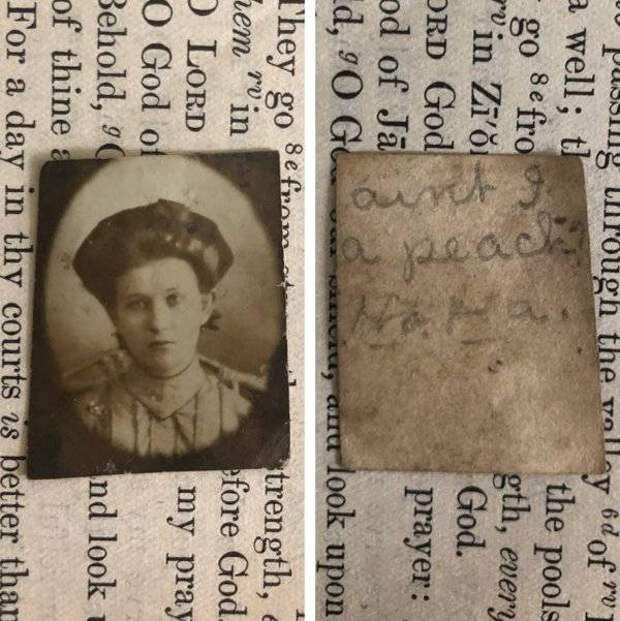 They go 8e from strength,
hem rv in efore God.
O LORD my pray
O God of
Behold, 9 O nd look
of thine a
For a day in thy courts is better than
passing through the valley 6d of rv
a well; th the pools
go 8e fro gth, every
rv in Zī'ŏ God.
ORD God prayer:
od of Jā
d, 9 O God our shield, and look upon
aint I
a peach?
Ha Ha.